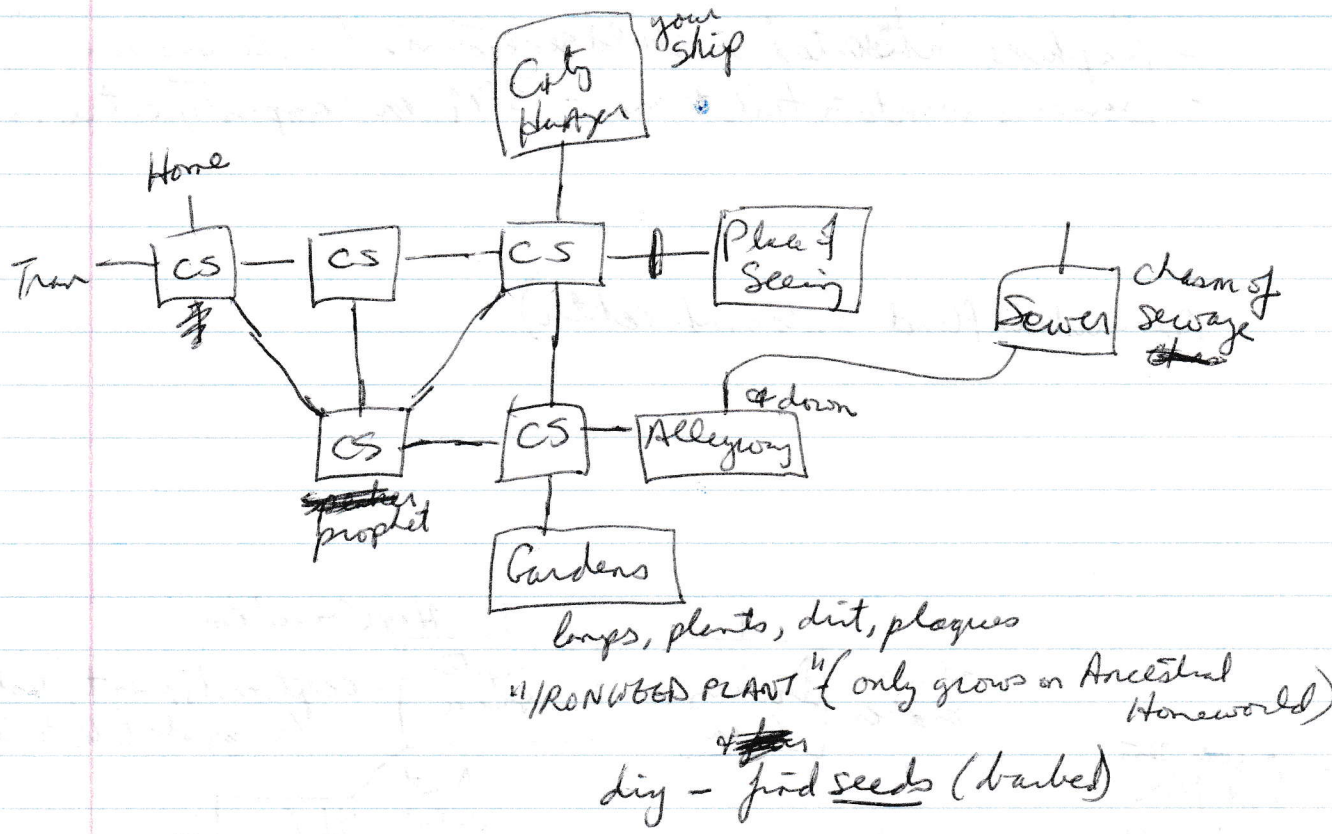 your
ship
City
Hanger
Home
Tram
CS
CS
CS
Place of
Seeing
Sewer
chasm of
sewage
& down
CS
CS
Alleyway
prophet
Gardens
lamps, plants, dirt, plaques
"IRONWEED PLANT" (only grows on Ancestral
Homeworld)
dig - find seeds (barbed)